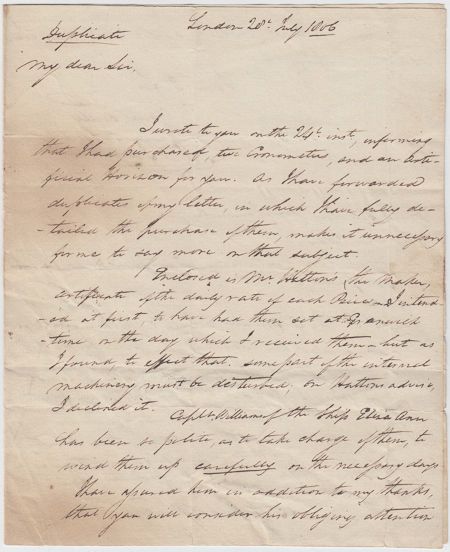 Duplicate
London 28t. July 1806
My dear Sir,
I wrote to you on the 24t. inst, informing
that I had purchased two Cronometers, and an Arti-
ficial Horizon for you. As I have forwarded
duplicates of my letter, in which I have fully de-
-tailed the purchase of them, makes it unnecessary
for me to say more on that subject.
Enclosed is Mr. the Maker,
certificate of the daily rate of each Piece - I intend-
-ed at first, to have had them set at Greenwich
-time on the day which I received them - but as
I found, to effect that, some part of the internal
machinery must be disturbed, on Huttons advice,
I declined it. Capt. Williams of the Ship Eliza Ann
has been so polite, as to take charge of them, to
wind them up carefully on the necessary days
I have assured him in addition to my thanks,
that you will consider his obliging attention